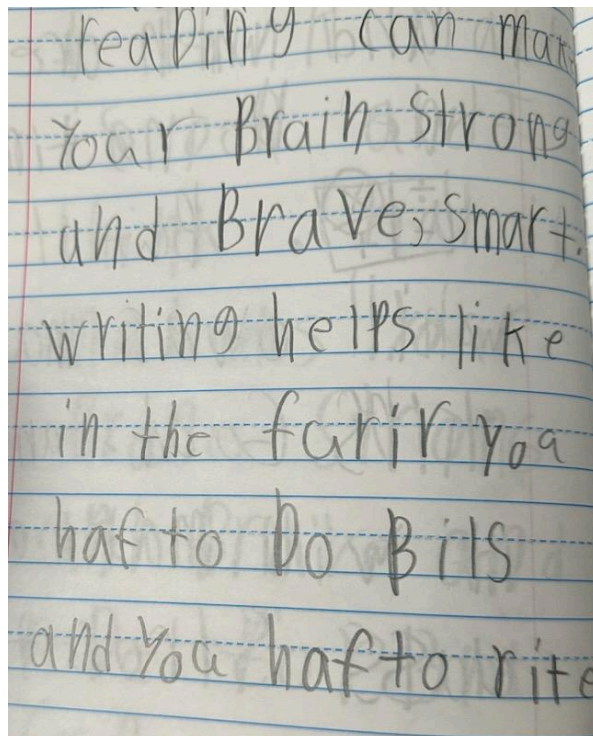 reaDing can mak
Your Brain Strong
and Brave, smart.
writing helps like
in the furir you
haf to Do Bils
and You haf to rite